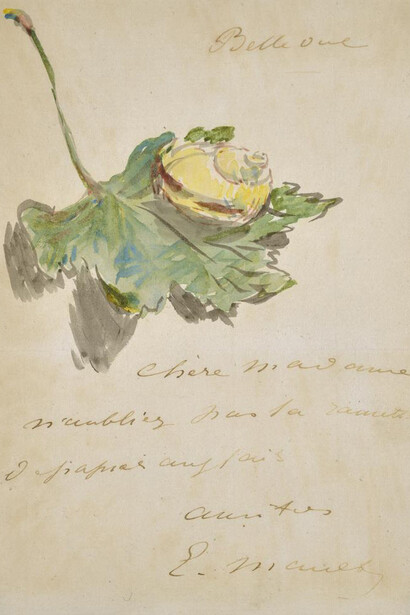 Bellevue
Chère Madame
n'oubliez pas la
papier anglais
amitiés
E. Manet